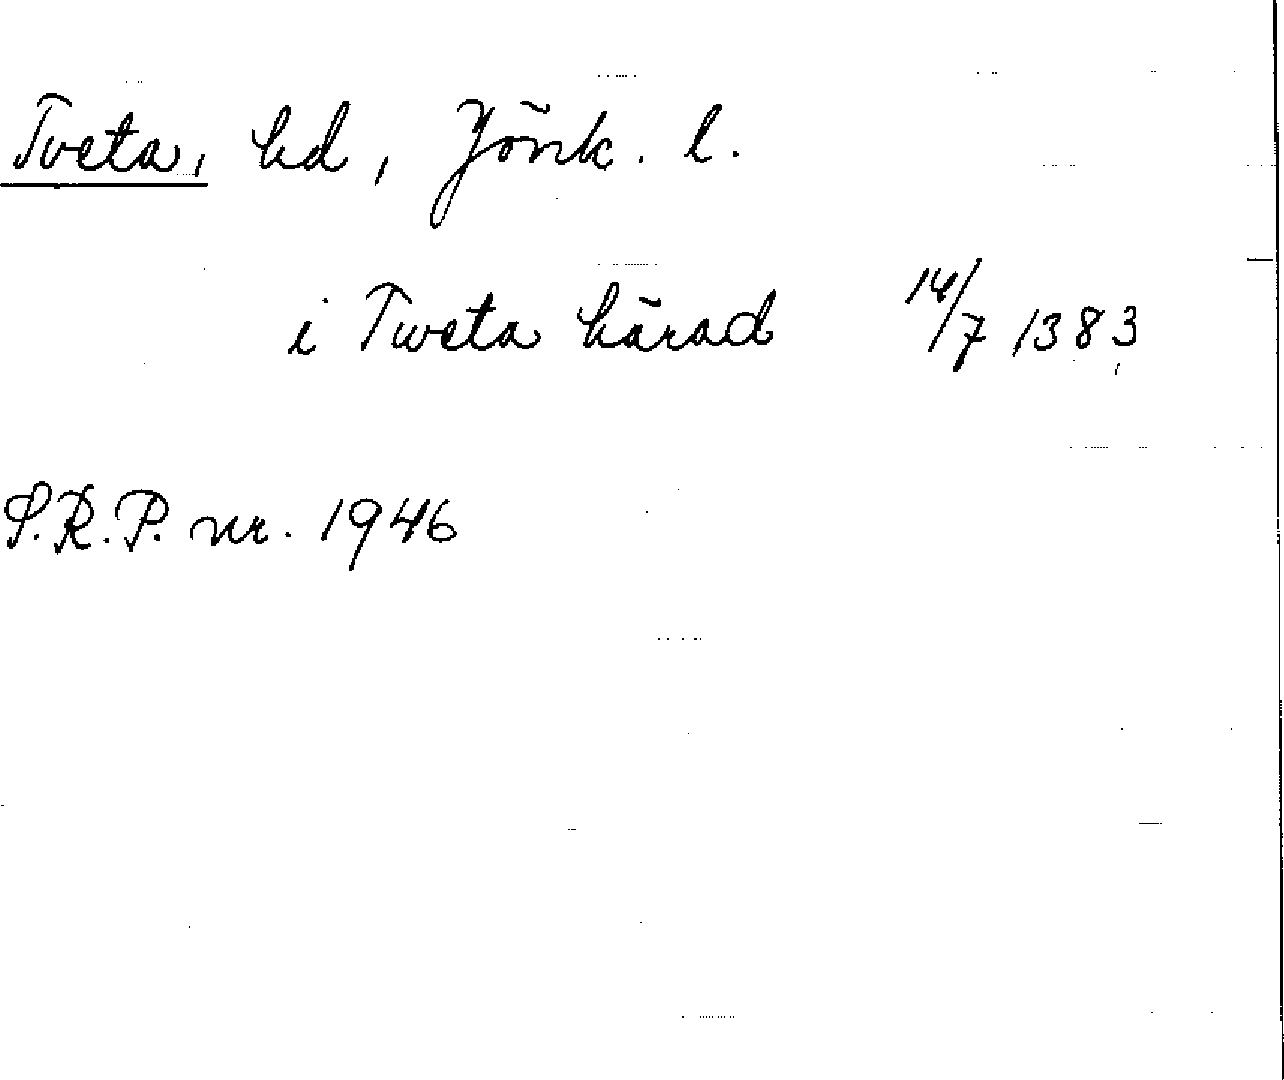 Tveta, hd, Jönk. l.
i Tweta härad 14/7 1383
S.R.P. nr. 1946